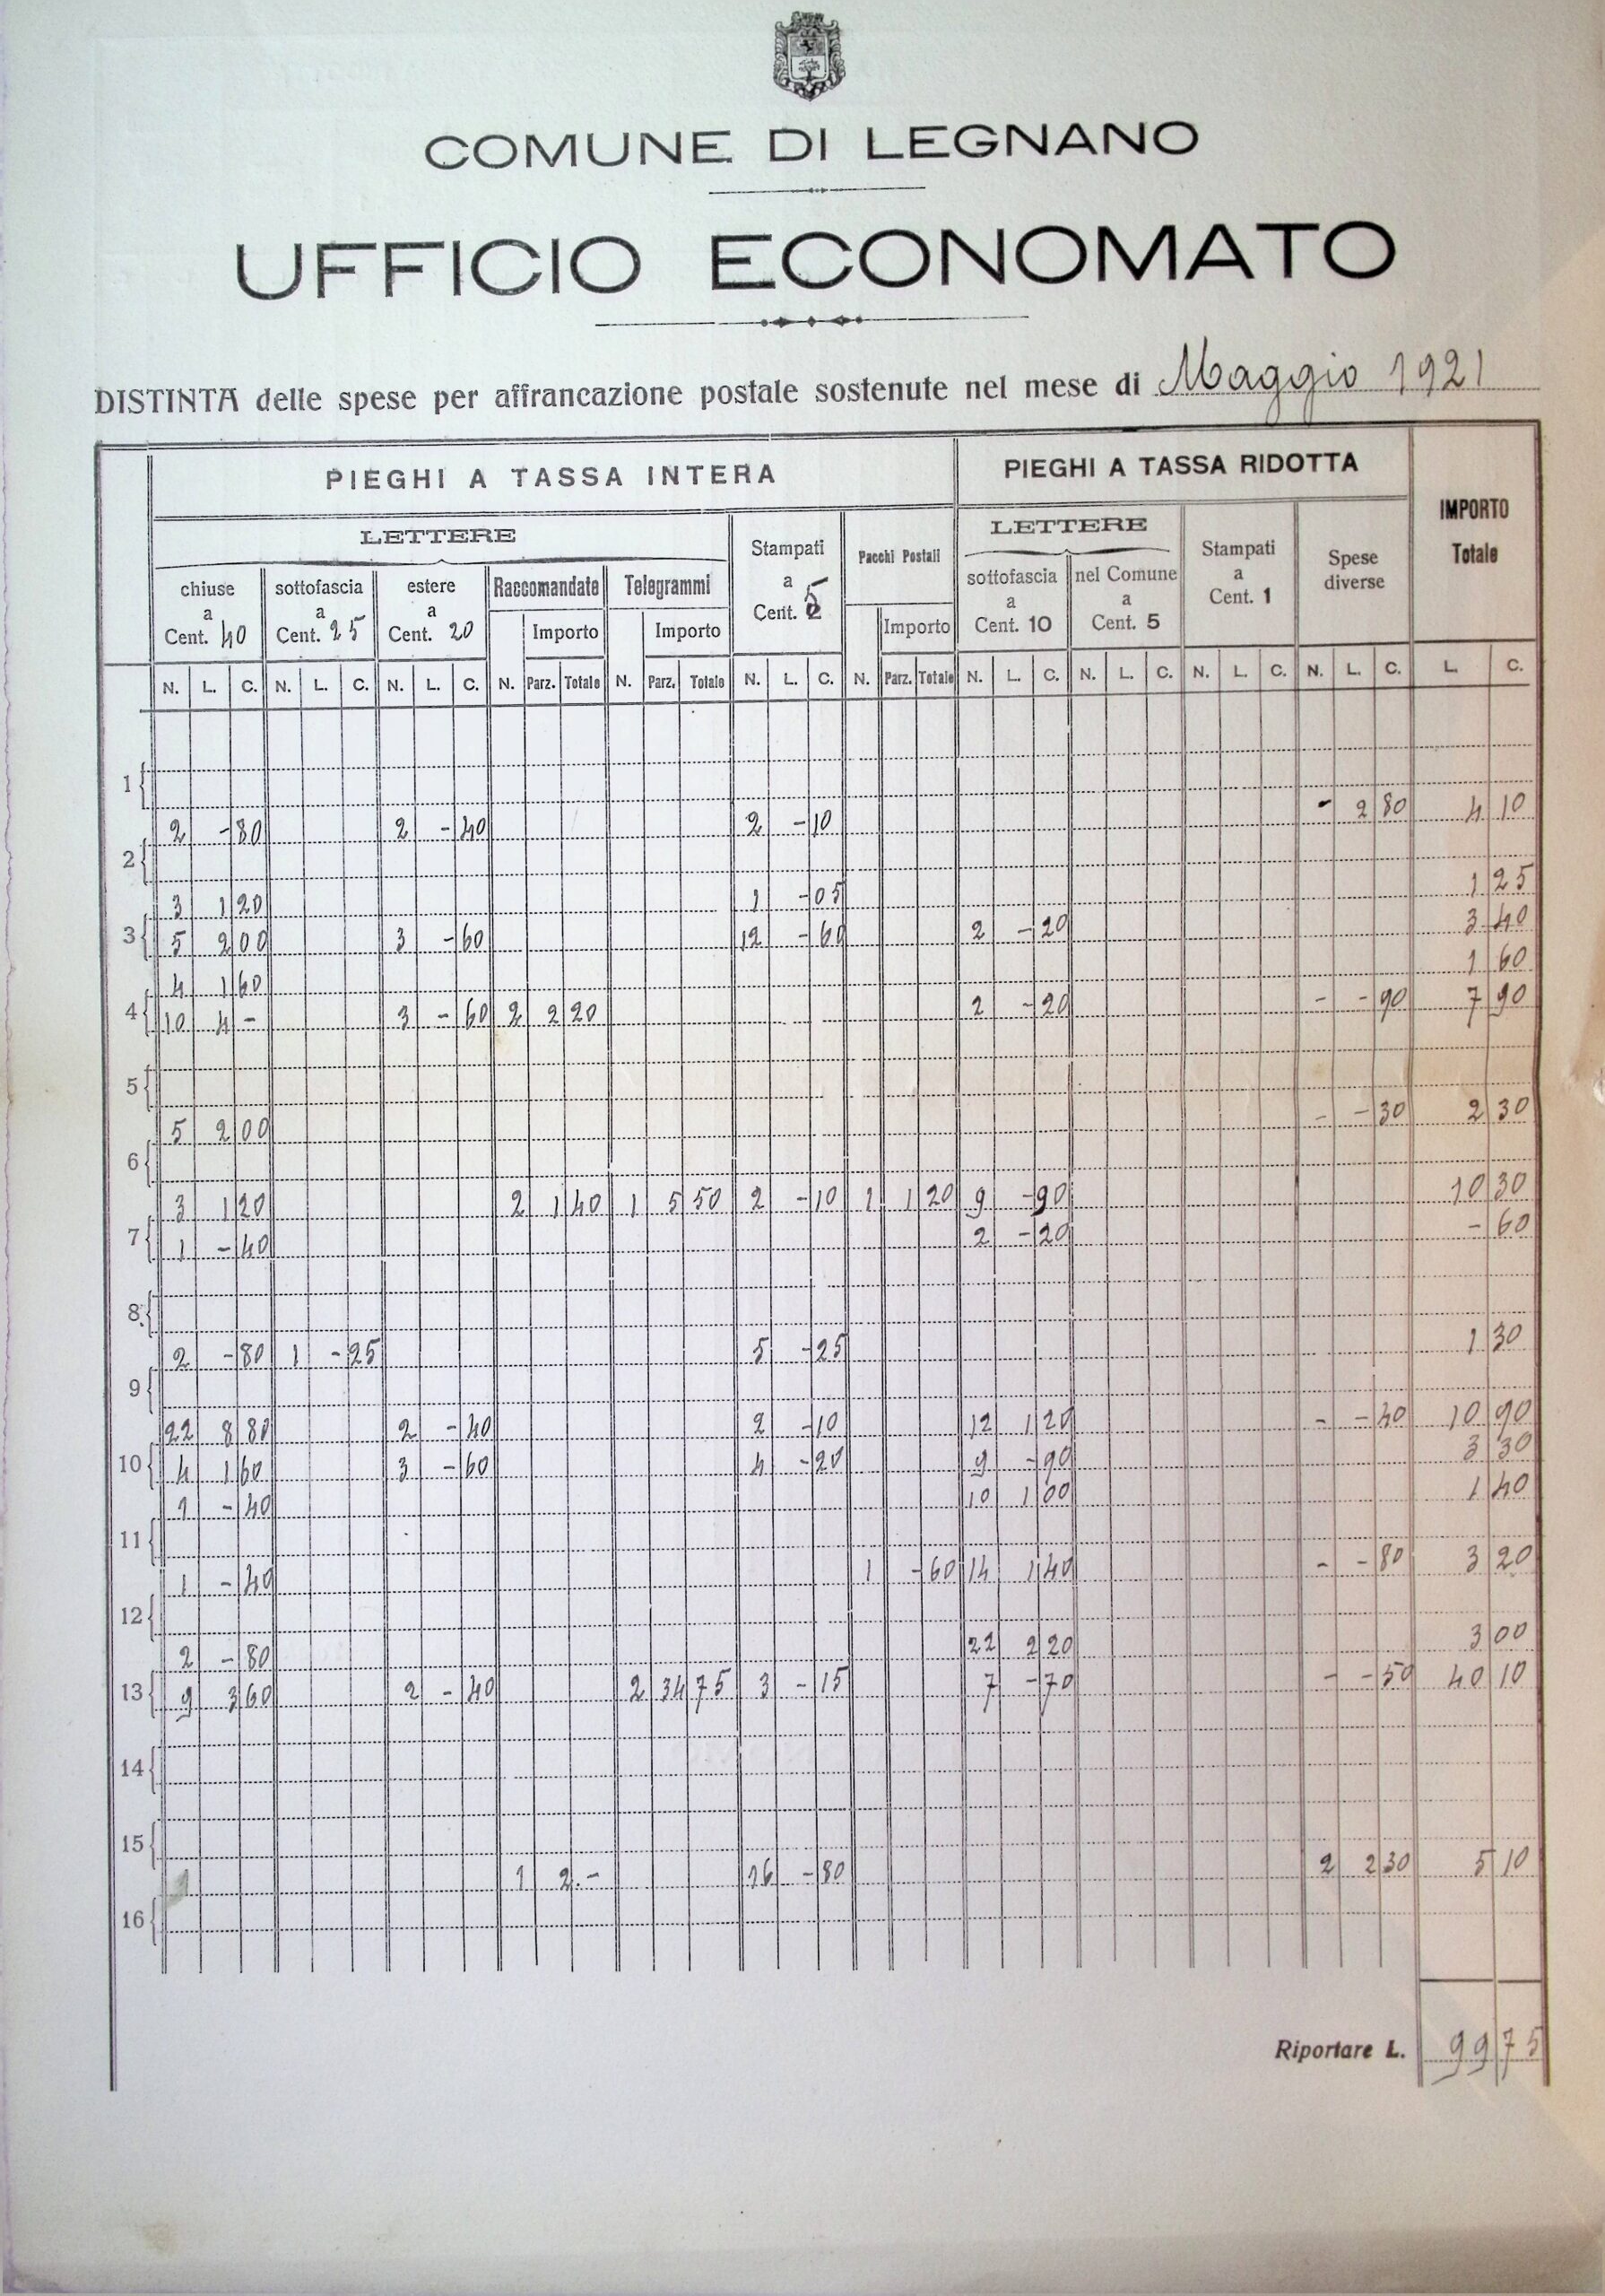 COMUNE DI LEGNANO
UFFICIO ECONOMATO
DISTINTA delle spese per affrancazione postale sostenute nel mese di Maggio 1921
PIEGHI A TASSA INTERA PIEGHI A TASSA RIDOTTA IMPORTO Totale
LETTERE Stampati a Cent. 5 Pacchi Postali LETTERE Stampati a Cent. 1 Spese diverse
chiuse a Cent. 40 sottofascia a Cent. 25 estere a Cent. 20 Raccomandate Telegrammi sottofascia a Cent. 10 nel Comune a Cent. 5
Importo Importo Importo
N. L. C. N. L. C. N. L. C. N. Parz. Totale N. Parz. Totale N. L. C. N. Parz. Totale N. L. C. N. L. C. N. L. C. N. L. C. L. C.
1
2 - 80 2 - 40 2 - 10 - 2 80 4 10
2
3 1 20 1 - 05 1 25
3 5 2 00 3 - 60 12 - 60 2 - 20 3 40
4 1 60 1 60
4 10 4 - 3 - 60 2 2 20 2 - 20 - - 90 7 90
5
5 2 00 - - 30 2 30
6
3 1 20 2 1 40 1 5 50 2 - 10 1 1 20 9 - 90 10 30
7 1 - 40 2 - 20 - 60
8
2 - 80 1 - 25 5 - 25 1 30
9
22 8 80 2 - 40 2 - 10 12 1 20 - - 40 10 90
10 4 1 60 3 - 60 4 - 20 9 - 90 3 30
1 - 40 10 1 00 1 40
11
1 - 40 1 - 60 14 1 40 - - 80 3 20
12
2 - 80 22 2 20 3 00
13 9 3 60 2 - 40 2 34 75 3 - 15 7 - 70 - - 50 40 10
14
15
1 2.- 16 - 80 2 2 30 5 10
16
Riportare L. 99 75